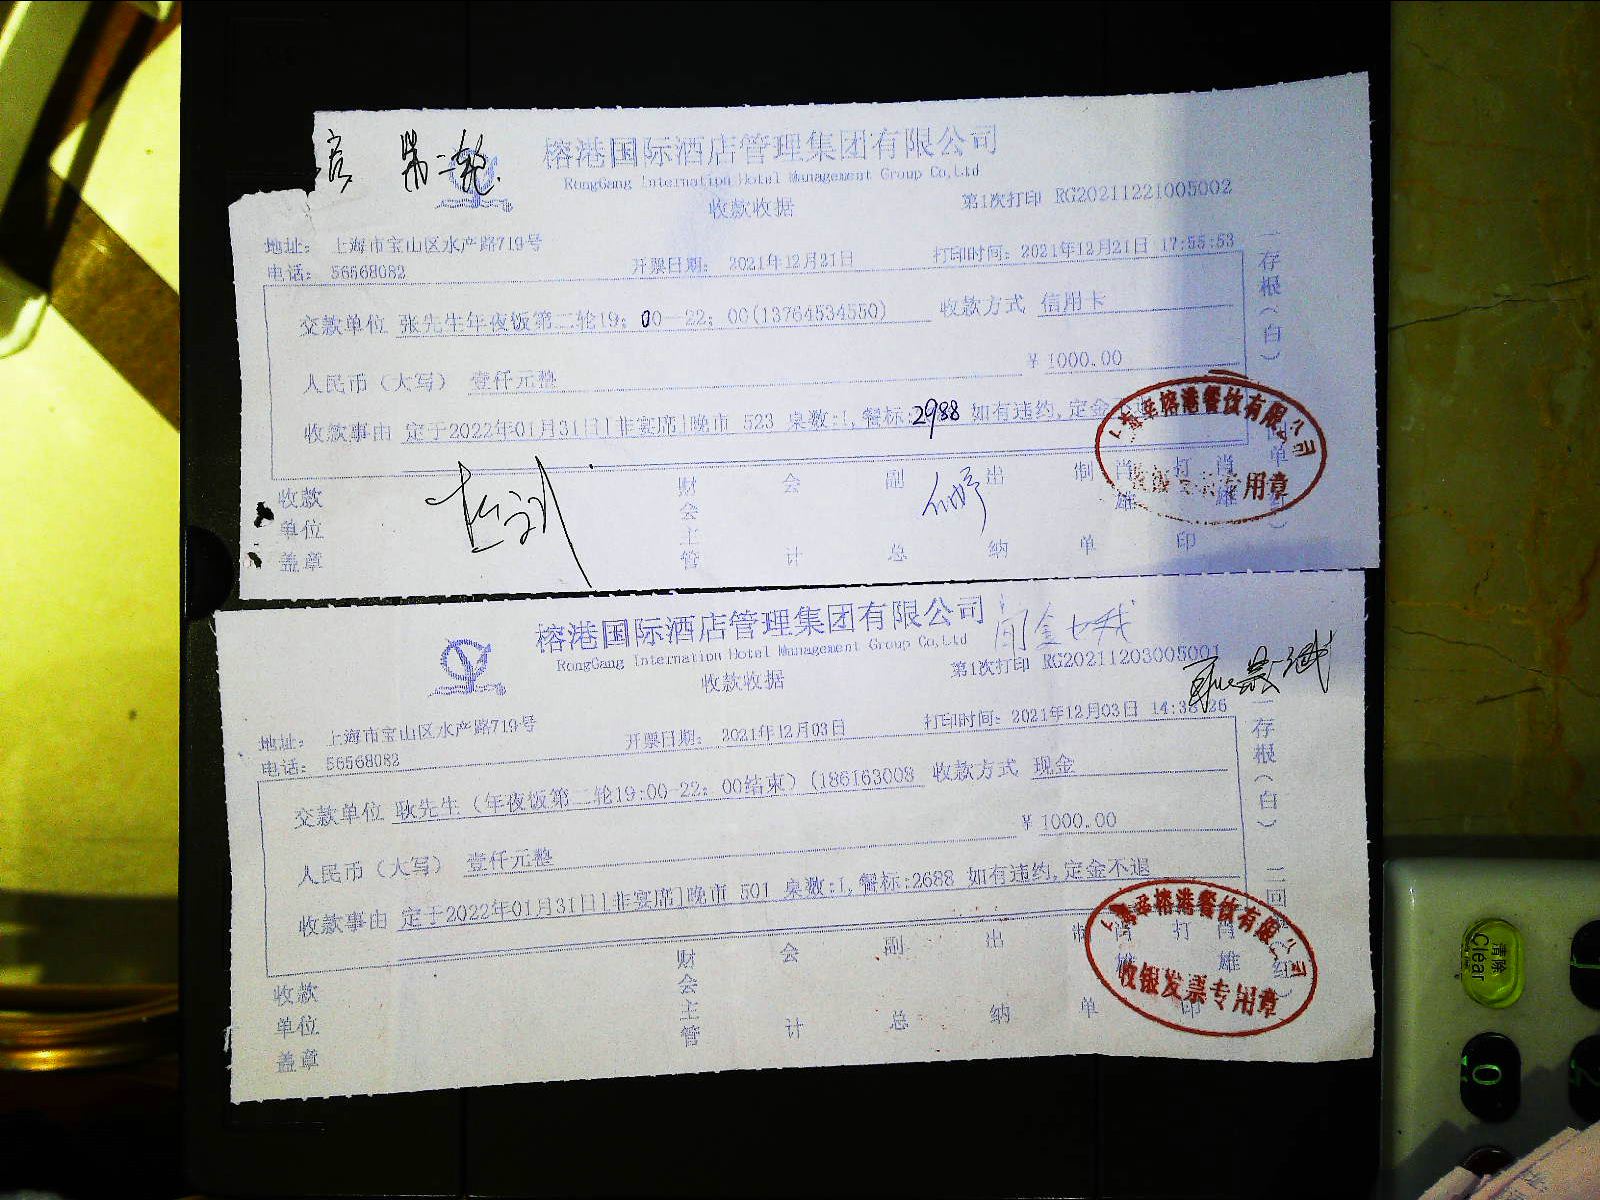 第二轮
榕港国际酒店管理集团有限公司
RongGang Internation Hotel Management Group Co,Ltd
收款收据
第1次打印 RG20211221005002
地址: 上海市宝山区水产路719号
电话: 56568082
开票日期: 2021年12月21日
打印时间: 2021年12月21日 17:55:53
交款单位 张先生年夜饭第二轮19:00-22:00(13764534550) 收款方式 信用卡
人民币（大写） 壹仟元整 ￥1000.00
收款事由 定于2022年01月31日[非宴席]晚市 523 桌数:1,餐标:2988 如有违约,定金不退
收款单位盖章 财会主管 会计 副总 出纳 制单 肖雄 打印 肖雄
一存根(白)
榕港餐饮有限公司
专用章
榕港国际酒店管理集团有限公司
RongGang Internation Hotel Management Group Co,Ltd
收款收据
第1次打印 RG20211203005001
地址: 上海市宝山区水产路719号
电话: 56568082
开票日期: 2021年12月03日
打印时间: 2021年12月03日 14:38:26
交款单位 耿先生（年夜饭第二轮19:00-22:00结束）(186163008 收款方式 现金
人民币（大写） 壹仟元整 ￥1000.00
收款事由 定于2022年01月31日[非宴席]晚市 501 桌数:1,餐标:2688 如有违约,定金不退
收款单位盖章 财会主管 会计 副总 出纳 制单 肖雄 打印 肖雄
一存根(白) 二回
榕港餐饮有限公司
收银发票专用章
清除
Clear
0